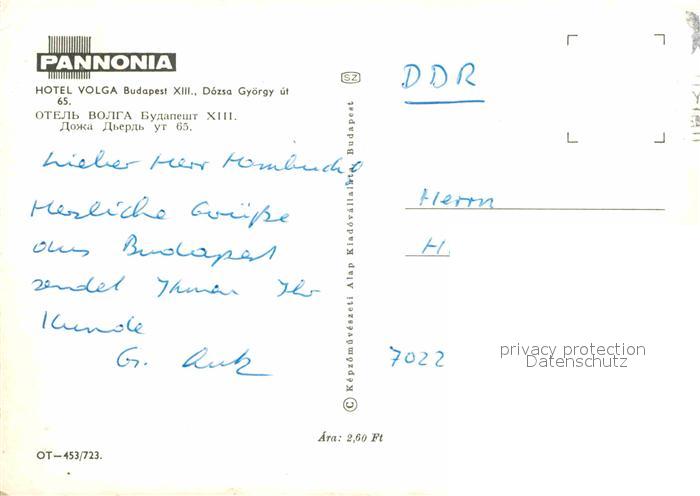 PANNONIA
HOTEL VOLGA Budapest XIII., Dózsa György út
65.
ОТЕЛЬ ВОЛГА Будапешт XIII.
Дожа Дьердь ут 65.
Lieber Herr
Herzliche Grüße
aus Budapest
sendet Ihnen Ihr
Kunde
G.
SZ
© Képzőművészeti Alap Kiadóvállalata, Budapest
DDR
Herrn
H.
7022
privacy protection
Datenschutz
Ára: 2,60 Ft
OT—453/723.